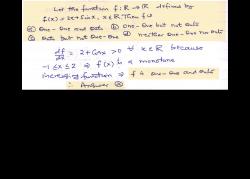 Let the function f: R → R defined by
f(x) = 2x + Sinx, x ∈ R Then f is
ⓐ One-One and Onto ⓑ One-One but not Onto
ⓒ Onto but not One-One ⓓ neither One-One nor Onto
df/dx = 2 + Cosx > 0 ∀ x ∈ R because
-1 ≤ x ≤ 2 ⇒ f(x) is a monotone
increasing function ⇒ f is one-one and onto
∴ Answer ⓐ